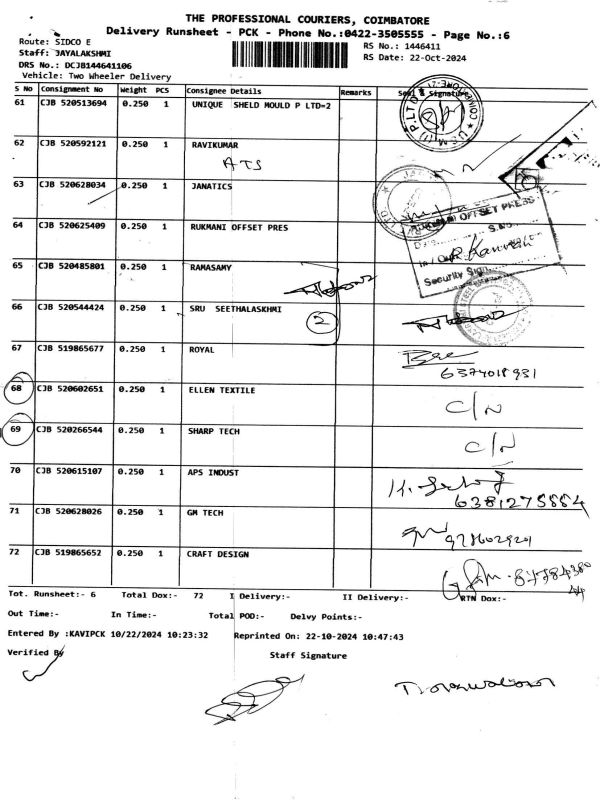 THE PROFESSIONAL COURIERS, COIMBATORE
Delivery Runsheet - PCK - Phone No.:0422-3505555 - Page No.:6
Route: SIDCO E
RS No.: 1446411
Staff: JAYALAKSHMI
RS Date: 22-Oct-2024
DRS No.: DCJB144641106
Vehicle: Two Wheeler Delivery
S No Consignment No Weight PCS Consignee Details Remarks Seal & Signature
61 CJB 520513694 0.250 1 UNIQUE SHELD MOULD P LTD=2
62 CJB 520592121 0.250 1 RAVIKUMAR
ATS
63 CJB 520628034 0.250 1 JANATICS
64 CJB 520625409 0.250 1 RUKMANI OFFSET PRES
RUKMANI OFFSET PRESS
Security Sign
65 CJB 520485801 0.250 1 RAMASAMY
66 CJB 520544424 0.250 1 SRU SEETHALASKHMI
2
67 CJB 519865677 0.250 1 ROYAL
6374018931
68 CJB 520602651 0.250 1 ELLEN TEXTILE C/N
69 CJB 520266544 0.250 1 SHARP TECH C/N
70 CJB 520615107 0.250 1 APS INDUST
6381275884
71 CJB 520628026 0.250 1 GM TECH
72 CJB 519865652 0.250 1 CRAFT DESIGN
Tot. Runsheet:- 6 Total Dox:- 72 I Delivery:- II Delivery:- RTN Dox:-
Out Time:- In Time:- Total POD:- Delvy Points:-
Entered By :KAVIPCK 10/22/2024 10:23:32 Reprinted On: 22-10-2024 10:47:43
Verified By Staff Signature